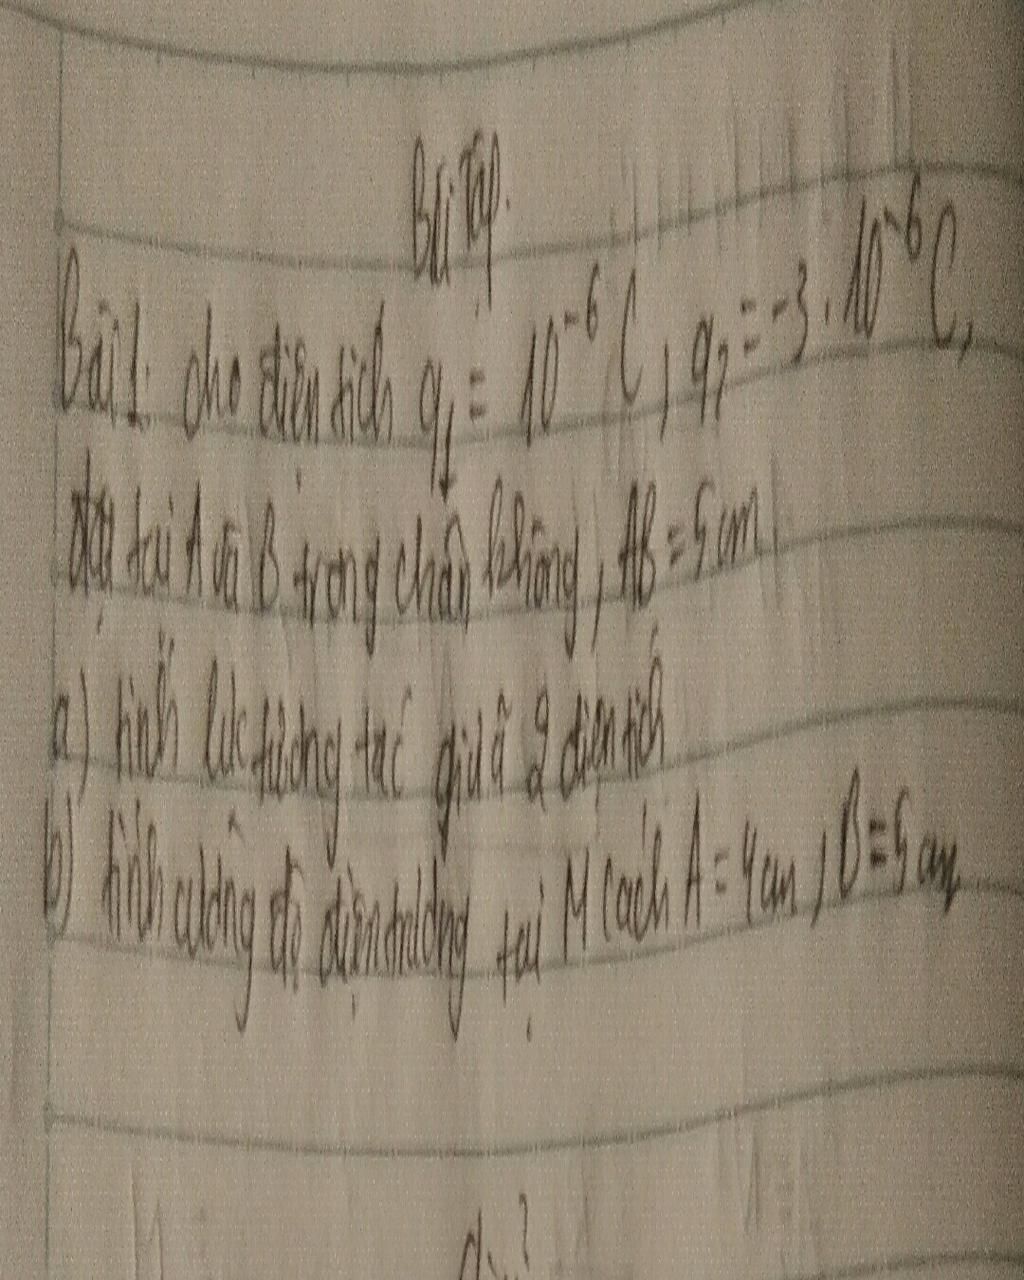 Bài Tập.
Bài 1. cho điện tích q₁ = 10⁻⁶ C, q₂ = -3.10⁻⁶ C,
đặt tại A và B trong chân không, AB = 5 cm
a) tính lực tương tác giữa 2 điện tích
b) tính cường độ điện trường tại M cách A = 4 cm, B = 5 cm